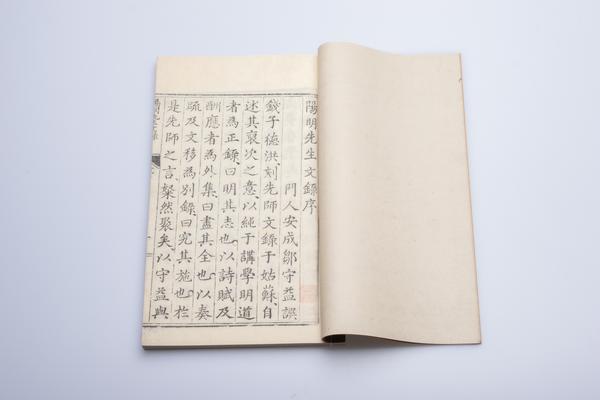 陽明先生文錄序
門人安成鄒守益譔
錢子德洪刻先師文錄于姑蘇自
述其裒次之意以純于講學明道
者為正錄曰明其志也以詩賦及
酬應者為外集曰盡其全也以奏
疏及文移為別錄曰究其施也於
是先師之言粲然聚矣以守益與